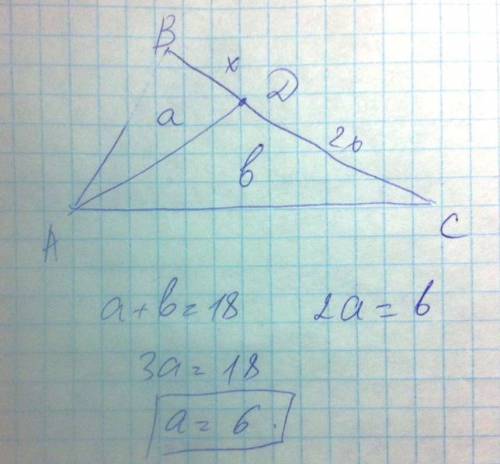 B
x
D
a
2x
в
A
C
a + в = 18
2a = в
3a = 18
a = 6.